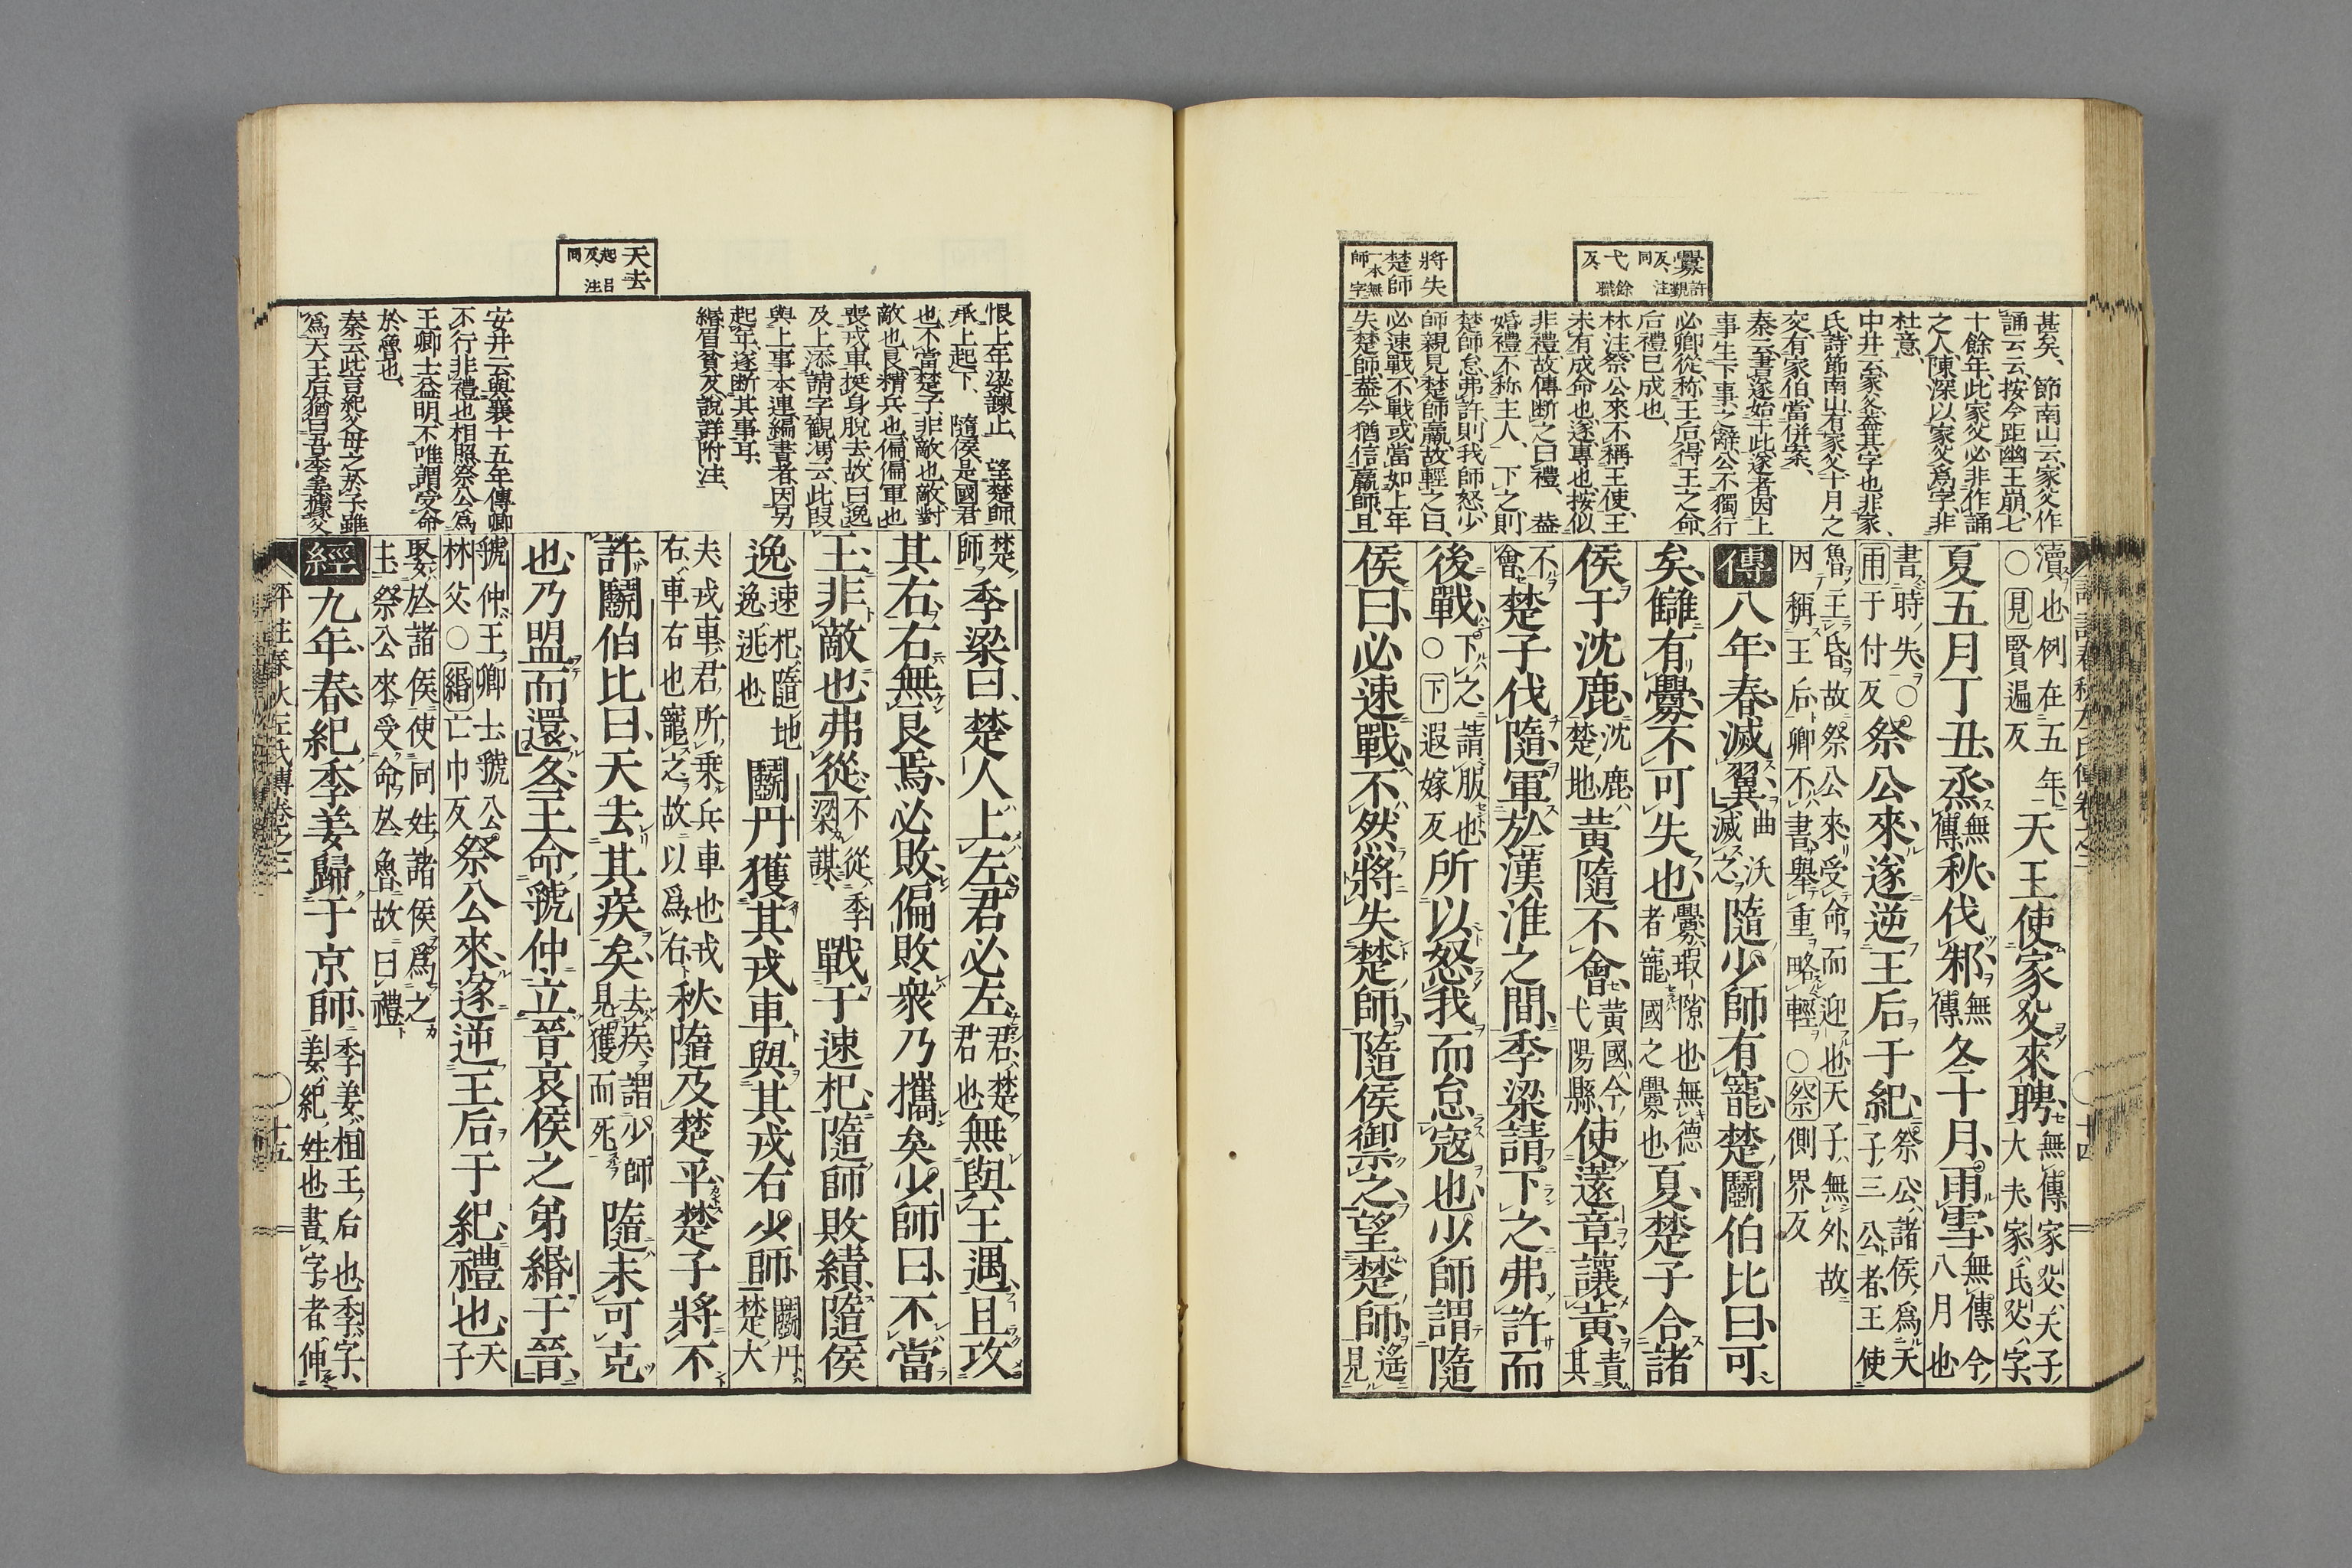 釁許覲
反注
同
弋餘
反職
將失
楚師
一本無
師字
甚矣、節南山云、家父作
誦云云、按今距幽王崩、七
十餘年、此家父必非作誦
之人、陳深以家父爲字、非
杜意、
中井云、家父蓋其字也、非家
氏、詩節南山、有家父、十月之
交、有家伯、當併案、
秦云、書遂始于此、遂者、因上
事生下事之辭、公不獨行
必卿從、称王后、得王之命、
后禮已成也、
林注、祭公來不稱王使、王
未有成命也、遂專也、按似
非禮、故傳斷之曰禮、蓋
婚禮不称主人、下之則
楚師怠、弗許則我師怒、少
師親見楚師羸、故輕之曰、
必速戰、不戰、或當如上年
失楚師、蓋今猶信羸師、且
瀆也例在五年、
○見賢遍反
天王使家父來聘、
無傳家父、天子、
大夫、家氏、父字、
夏五月丁丑烝、
無
傳
秋伐邾、
無
傳
冬十月、雨雪、
無傳今
八月也
書時失、○
雨于付反
祭公來、遂逆王后于紀、
祭公、諸侯爲天
子三公者、王使
魯主昏、故祭公來受命而迎也天子無外、故
因稱王后、卿不書、舉重略輕○祭側界反
傳八年、春、滅翼、
曲沃
滅之
隨少師有寵、楚鬭伯比曰、可
矣、讎有釁、不可失也、
釁、瑕隙也無德
者寵國之釁也
夏、楚子合諸
侯于沈鹿、
沈鹿
楚地
黃隨不會、
黃國、今
弋陽縣、
使薳章讓黃、
責
其
不
會
楚子伐隨、軍於漢淮之間、季梁請下之、弗許而
後戰、
下之請服也
○下遐嫁反
所以怒我而怠寇也、少師謂隨
侯曰、必速戰、不然將失楚師、隨侯禦之、望楚師、
遙
見
評註春秋左氏傳卷之二
十四
天去
起呂
反、注
同
恨上年梁諫止、望楚師
承上起下、隨侯、是國君
也、不當楚子、非敵也、敵對
敵也、良、精兵也、偏、偏軍也
喪戎車、挺身脫去、故曰逸
及上添請字觀、馮云、此段
與上事本連、編書者、因另
起年、遂斷其事耳、
緡眉貧反、說詳附注、
安井云、與襄十五年傳、卿
不行非禮也相照、祭公爲
王卿士益明、不唯謂受命
於魯也、
秦云、此言紀父母之於子、雖
爲天王后、猶曰吾季姜、據父
楚
師
季梁曰、楚人上左、君必左、
君、楚
君也
無與王遇、且攻
其右、右無良焉、必敗、偏敗、衆乃攜矣、少師曰、不當
王、非敵也、弗從、
不從季
梁謀、
戰于速杞、隨師敗績、隨侯
逸、
速杞、隨地
逸、逃也
鬭丹獲其戎車、與其戎右少師、
鬭丹、
楚大
夫、戎車、君所乘兵車也戎
右、車右也寵之故以爲右、
秋、隨及楚平、楚子將不
許、鬭伯比曰、天去其疾矣、
去疾謂少師
見獲而死、
隨未可克
也、乃盟而還、冬、王命虢仲立晉哀侯之弟緡于晉、
虢仲、王卿士虢公
林父、○緡亡巾反
祭公來、遂逆王后于紀、禮也、
天
子
娶於諸侯、使同姓諸侯爲之
主、祭公來受命於魯、故曰禮
經九年、春、紀季姜歸于京師、
季姜、桓王后也、季、字、
姜、紀姓也、書字者、伸
評註春秋左氏傳卷之二
十五